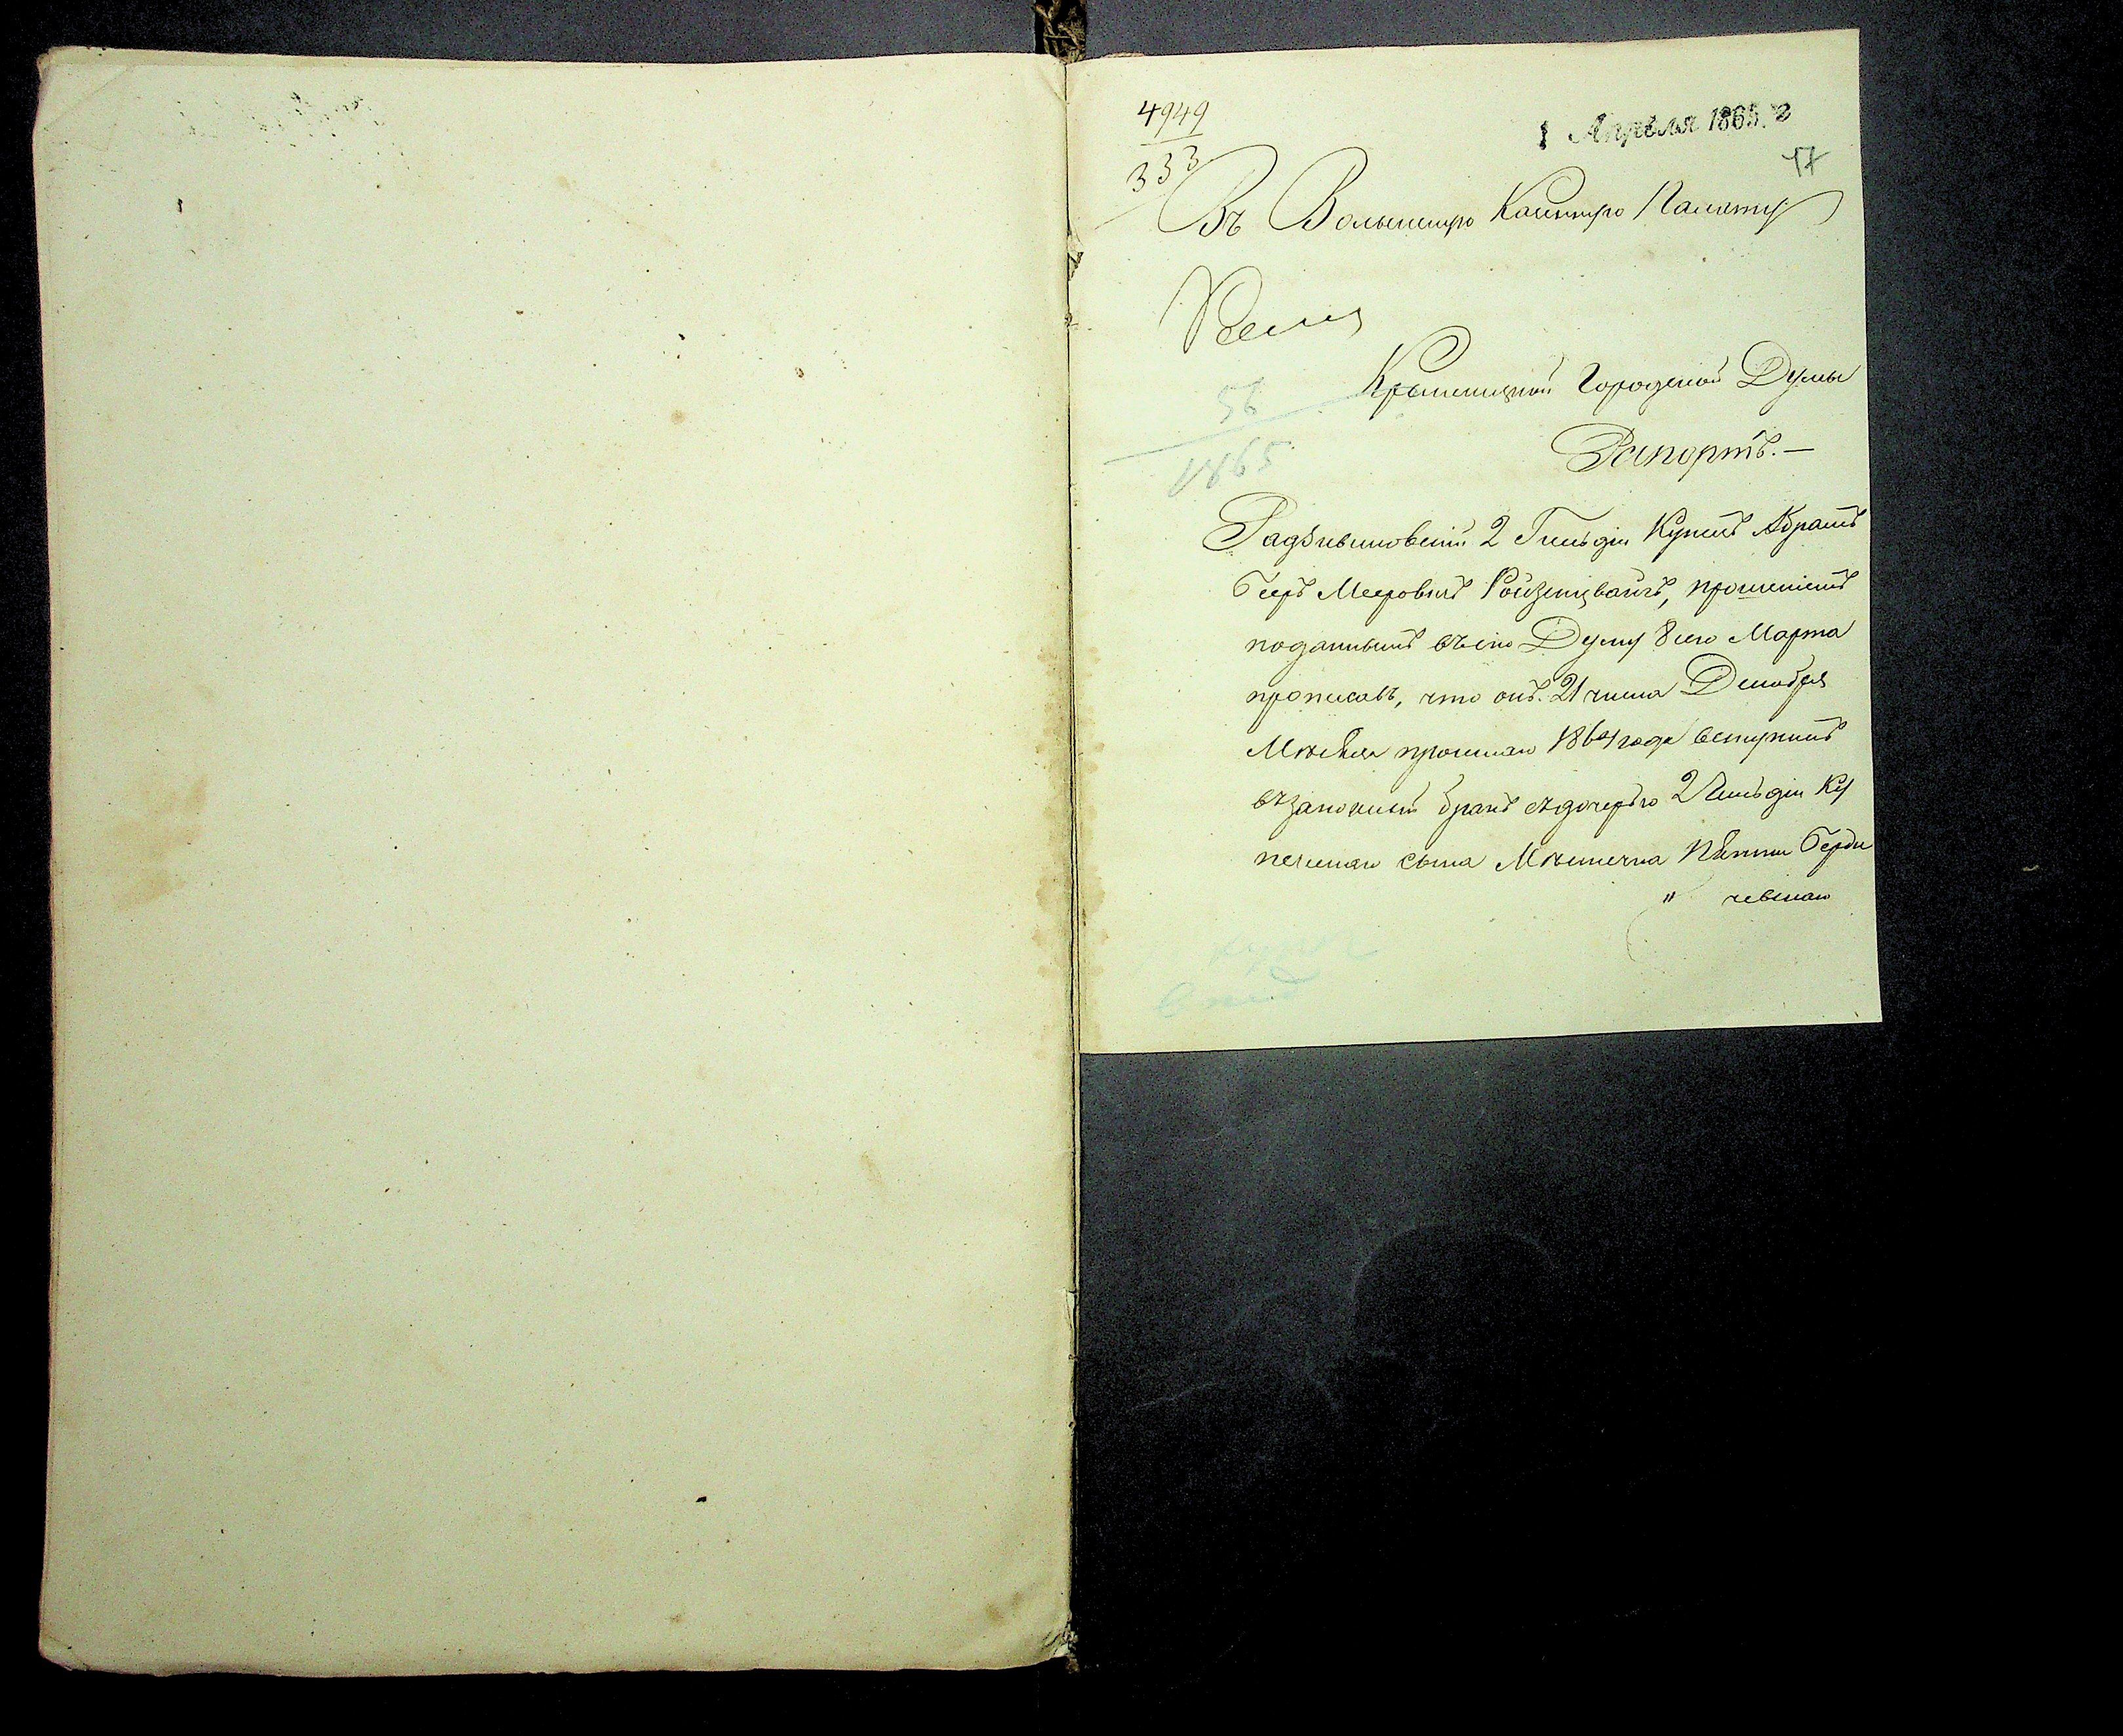 4949
333
1 Апрѣля 1865.
17
Въ Волынскую Казенную Палату
Кременецкой Городской Думы
Рапортъ.—
56
1865
Радзивиловскій 2 Гильдіи Купецъ Абрамъ
Беръ Мееровичъ Ройзенцвайгъ, прошеніемъ
поданнымъ въ сію Думу 8 сего Марта
прописалъ, что онъ 21 числа Декабря
Мѣсяца прошлаго 1864 года вступилъ
въ законный бракъ съ дочерью 2 Гильдіи Ку
печескаго сына Мѣстечка Берди
" чевскаго